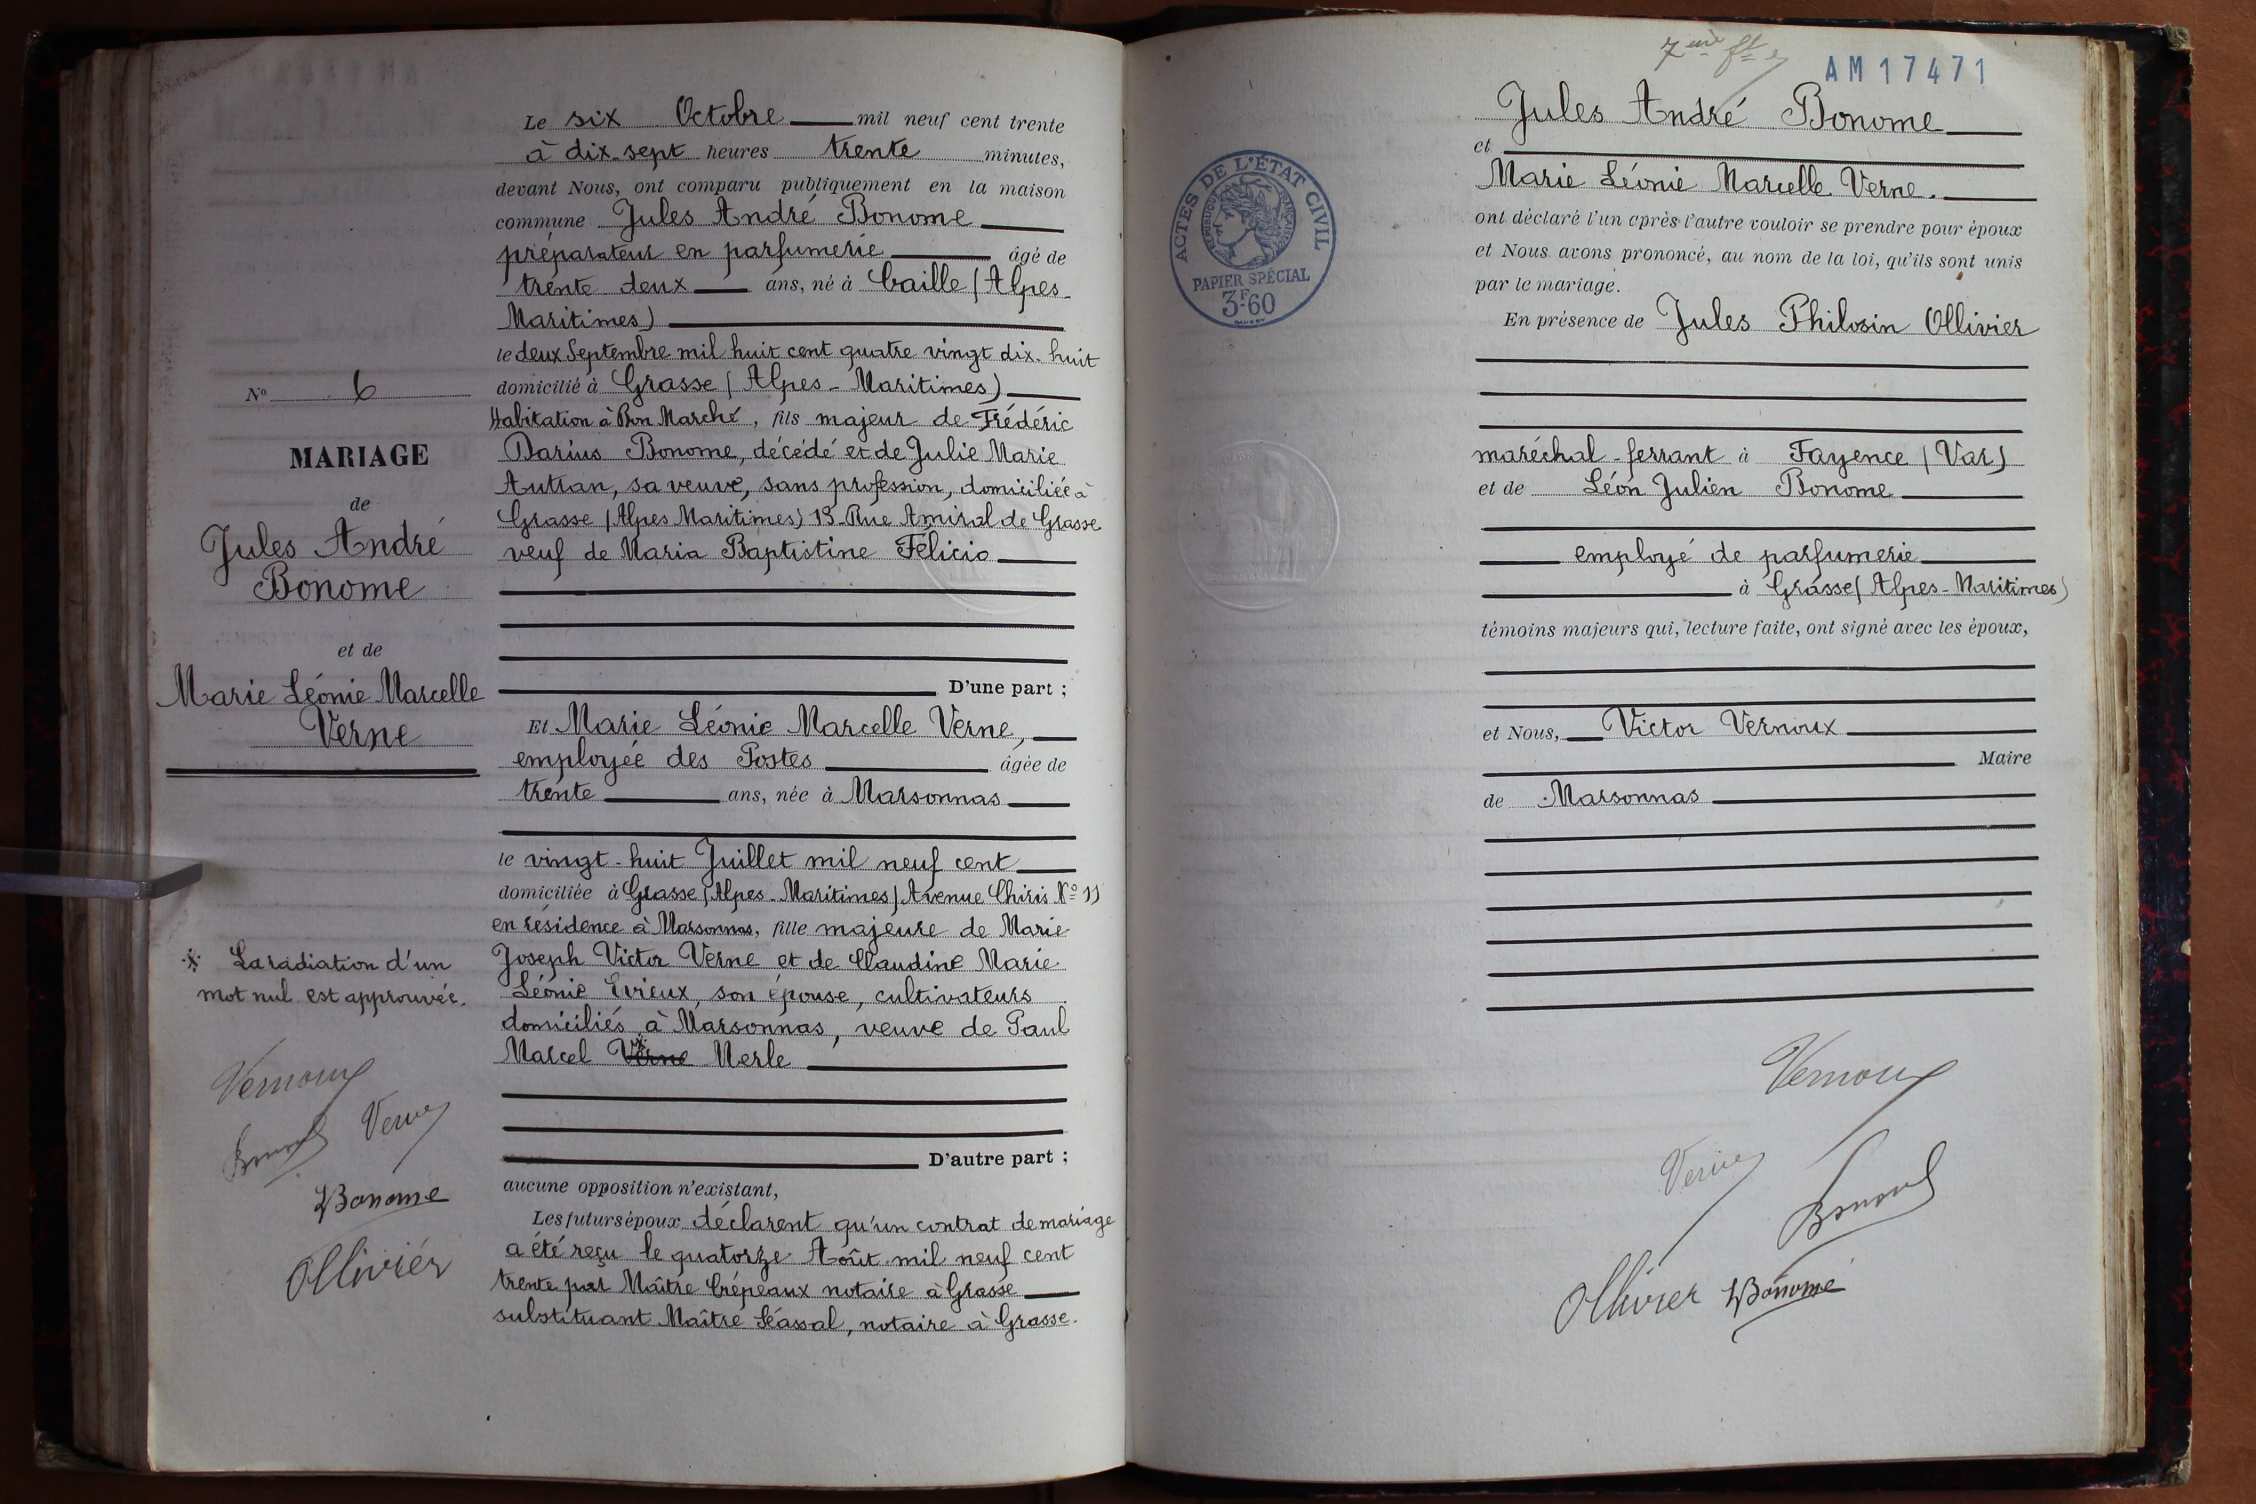 No 6
MARIAGE
de
Jules André
Bonome
et de
Marie Léonie Marcelle
Verne
La radiation d'un
mot nul est approuvée.
Vernoux
Verne
Bonome
Ollivier
Le six Octobre mil neuf cent trente
à dix-sept heures trente minutes,
devant Nous, ont comparu publiquement en la maison
commune Jules André Bonome
préparateur en parfumerie âgé de
trente deux ans, né à Caille (Alpes-
Maritimes)
le deux Septembre mil huit cent quatre vingt dix-huit
domicilié à Grasse (Alpes-Maritimes)
Habitation à Bon Marché, fils majeur de Frédéric
Darius Bonome, décédé et de Julie Marie
Autran, sa veuve, sans profession, domiciliée à
Grasse (Alpes Maritimes) 13 Rue Amiral de Grasse
veuf de Maria Baptistine Félicio
D'une part ;
Et Marie Léonie Marcelle Verne,
employée des Postes âgée de
trente ans, née à Marsonnas
le vingt-huit Juillet mil neuf cent
domiciliée à Grasse (Alpes-Maritimes) Avenue Chiris No 11
en résidence à Marsonnas, fille majeure de Marie
Joseph Victor Verne et de Claudine Marie
Léonie Evieux, son épouse, cultivateurs
domiciliés à Marsonnas, veuve de Paul
Marcel Verne Merle
D'autre part ;
aucune opposition n'existant,
Les futurs époux déclarent qu'un contrat de mariage
a été reçu le quatorze Août mil neuf cent
trente par Maître Crépeaux notaire à Grasse
substituant Maître notaire à Grasse.
ACTES DE L'ÉTAT CIVIL
RÉPUBLIQUE FRANÇAISE
PAPIER SPÉCIAL
3F60
7ème ft
AM17471
Jules André Bonome
et
Marie Léonie Marcelle Verne.
ont déclaré l'un après l'autre vouloir se prendre pour époux
et Nous avons prononcé, au nom de la loi, qu'ils sont unis
par le mariage.
En présence de Jules Philosin Ollivier
maréchal-ferrant à Fayence (Var)
et de Léon Julien Bonome
employé de parfumerie
à Grasse (Alpes-Maritimes)
témoins majeurs qui, lecture faite, ont signé avec les époux,
et Nous, Victor Vernoux
Maire
de Marsonnas
Vernoux
Verne
Bonome
Ollivier Bonome